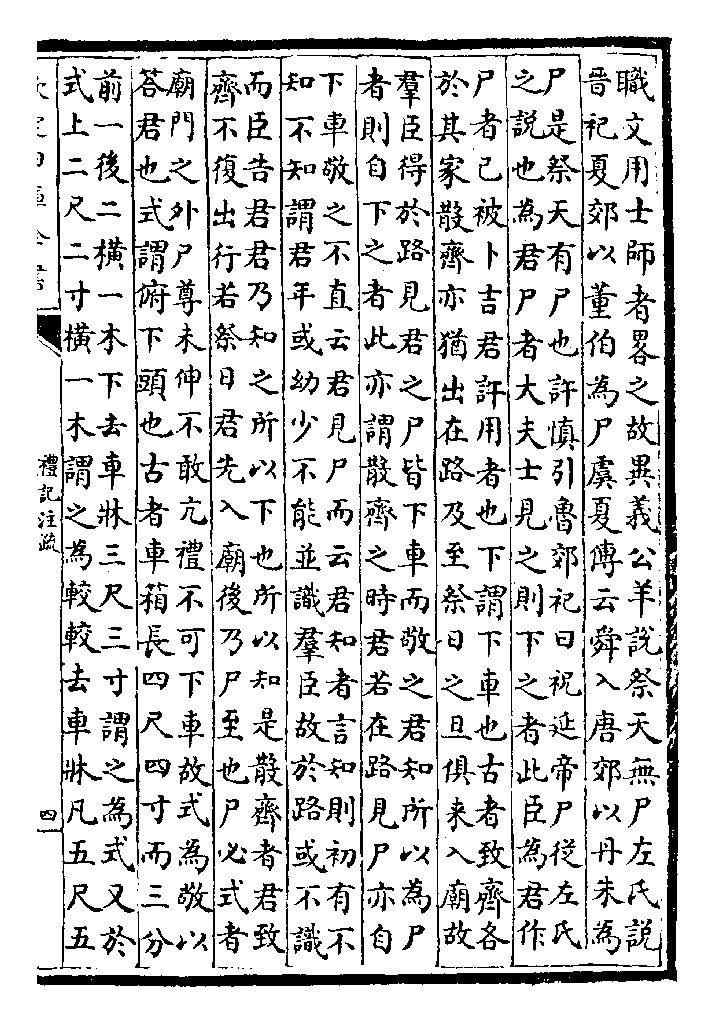 職文用士師者畧之故異義公羊說祭天無尸左氏說
晋祀夏郊以董伯為尸虞夏傳云舜入唐郊以丹朱為
尸是祭天有尸也許慎引魯郊祀曰祝延帝尸從左氏
之說也為君尸者大夫士見之則下之者此臣為君作
尸者已被卜吉君許用者也下謂下車也古者致齊各
於其家散齊亦猶出在路及至祭日之旦俱来入廟故
羣臣得於路見君之尸皆下車而敬之君知所以為尸
者則自下之者此亦謂散齊之時君若在路見尸亦自
下車敬之不直云君見尸而云君知者言知則初有不
知不知謂君年或幼少不能並識羣臣故於路或不識
而臣告君君乃知之所以下也所以知是散齊者君致
齊不復出行若祭日君先入廟後乃尸至也尸必式者
廟門之外尸尊未伸不敢亢禮不可下車故式為敬以
荅君也式謂俯下頭也古者車箱長四尺四寸而三分
前一後二橫一木下去車牀三尺三寸謂之為式又於
式上二尺二寸橫一木謂之為較較去車牀凡五尺五
禮記注疏
四